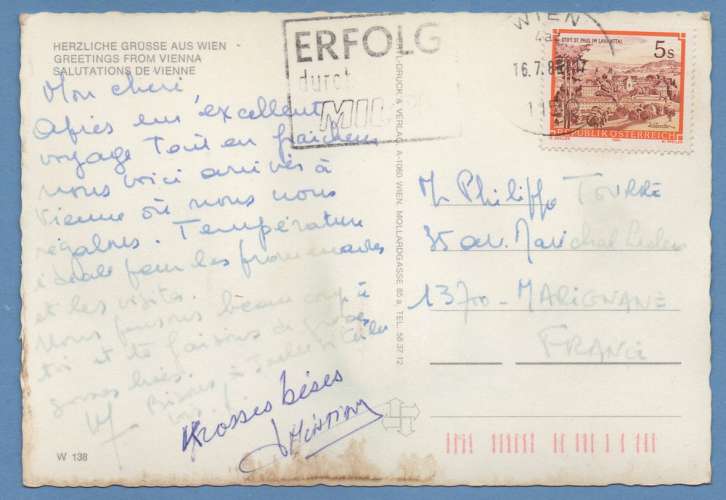 HERZLICHE GRÜSSE AUS WIEN
GREETINGS FROM VIENNA
SALUTATIONS DE VIENNE
Mon chéri
Après un excellent
voyage tout en fraîcheur
nous voici arrivés à
Vienne où nous nous
régalons. Température
idéale pour les promenades
et les visites.
Nous pensons beaucoup à
toi et te faisons de grosses
grosses bises.
Bises à
Grosses bises
W 138
DRUCK & VERLAG, A-1060 WIEN, MOLLARDGASSE 85 a, TEL. 56 37 12
ERFOLG
durch
MIL
WIEN
16.7.8
STIFT ST. PAUL IM LAVANTTAL
5s
REPUBLIK ÖSTERREICH
M Philippe TOURRE
35 av. Maréchal
13700 - MARIGNANE
FRANCE